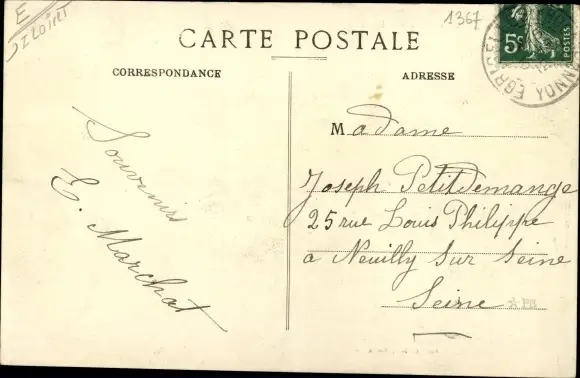 E
1367
CARTE POSTALE
5c
POSTES
CORRESPONDANCE
ADRESSE
Souvenirs
E. Marchat
Madame
Joseph Petitdemange
25 rue Louis Philippe
à Neuilly sur Seine
Seine